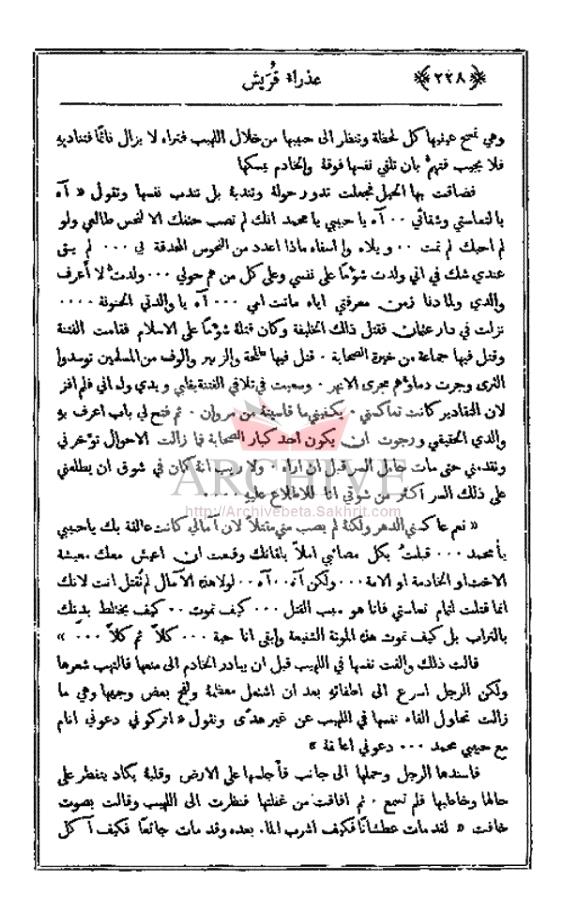 ﴿٢٢٨﴾
عذراء قُرَيش
وهي تمسح عينيها كل لحظة وتنظر الى حبيبها من خلال اللهيب فتراه لا يزال نائمًا فتناديهِ
فلا يجيب فتهمُّ بان تلقي نفسها فوقهُ والخادم يمسكها
فضاقت بها الحيل فجعلت تدور حولهُ وتندبهُ بل تندب نفسها وتقول « آه
يا لتعاستي وشقائي ٠٠ آه يا حبيبي يا محمد انك لم تصب حتفك الا لنحس طالعي ولو
لم احبك لم تمت ٠٠ ويلاه وا اسفاه ماذا اعدد من النحوس المحدقة بي ٠٠٠ لم يبق
عندي شك في اني ولدت شؤمًا على نفسي وعلى كل من هم حولي ٠٠٠ ولدتُ لا أعرف
والدي ولما دنا زمن معرفتي اياه ماتت امي ٠٠٠ آه يا والدتي الحنونة ٠٠٠٠
نزلت في دار عثمان فقتل ذلك الخليفة وكان قتلهُ شؤمًا على الاسلام فقامت الفتنة
وقتل فيها جماعة من خيرة الصحابة ٠ قتل فيها طلحة والزبير والوف من المسلمين توسدوا
الثرى وجرت دماؤهم مجرى الانهر ٠ وسعيت في تلافي الفتنة بقلبي ويدي ولساني فلم افز
لان التقادير كانت تعاكسني ٠ يكفيني ما قاسيتهُ من مروان ٠ ثم فتح لي باب اعرف بهِ
والدي الحقيقي ورجوت ان يكون احد كبار الصحابة فما زالت الاحوال تؤخرني
وتقدمني حتى مات حامل السر قبل ان اراه ٠ ولا ريب انهُ كان في شوق ان يطلعني
على ذلك السر اكثر من شوقي انا للاطلاع عليهِ ٠٠٠٠
ARCHIVE
http://Archivebeta.Sakhrit.com
« نعم عاكسني الدهر ولكنهُ لم يصب مني مقتلاً لان آمالي كانت عالقة بك يا حبيبي
يا محمد ٠٠٠ قبلتُ بكل مصائبي املاً بلقائك وقنعت ان اعيش معك معيشة
الاخت او الخادمة او الامة ٠٠٠ ولكن آه ٠٠ آه ٠٠ لولا هذه الآمال لم تُقتل انت لانك
انما قتلت لتمام تعاستي فانا هو سبب القتل ٠٠٠ كيف تموت ٠٠ كيف يختلط بدنك
بالتراب بل كيف تموت هذه الموتة الشنيعة وابقى انا حية ٠٠٠ كلاَّ ثم كلاَّ ٠٠٠ »
قالت ذلك والقت نفسها في اللهيب قبل ان يبادر الخادم الى منعها فالتهب شعرها
ولكن الرجل اسرع الى اطفائهِ بعد ان اشتعل معظمهُ ولفح بعض وجهها وهي ما
زالت تحاول القاء نفسها في اللهيب عن غير هدًى وتقول « اتركوني دعوني انام
مع حبيبي محمد ٠٠٠ دعوني اعانقهُ »
فاسندها الرجل وحملها الى جانب فأجلسها على الارض وقلبهُ يكاد يتفطر على
حالها وخاطبها فلم تسمع ٠ ثم افاقت من غفلتها فنظرت الى اللهيب وقالت بصوت
خافت « لقد مات عطشانًا فكيف اشرب الماء بعده وقد مات جائعًا فكيف آكل